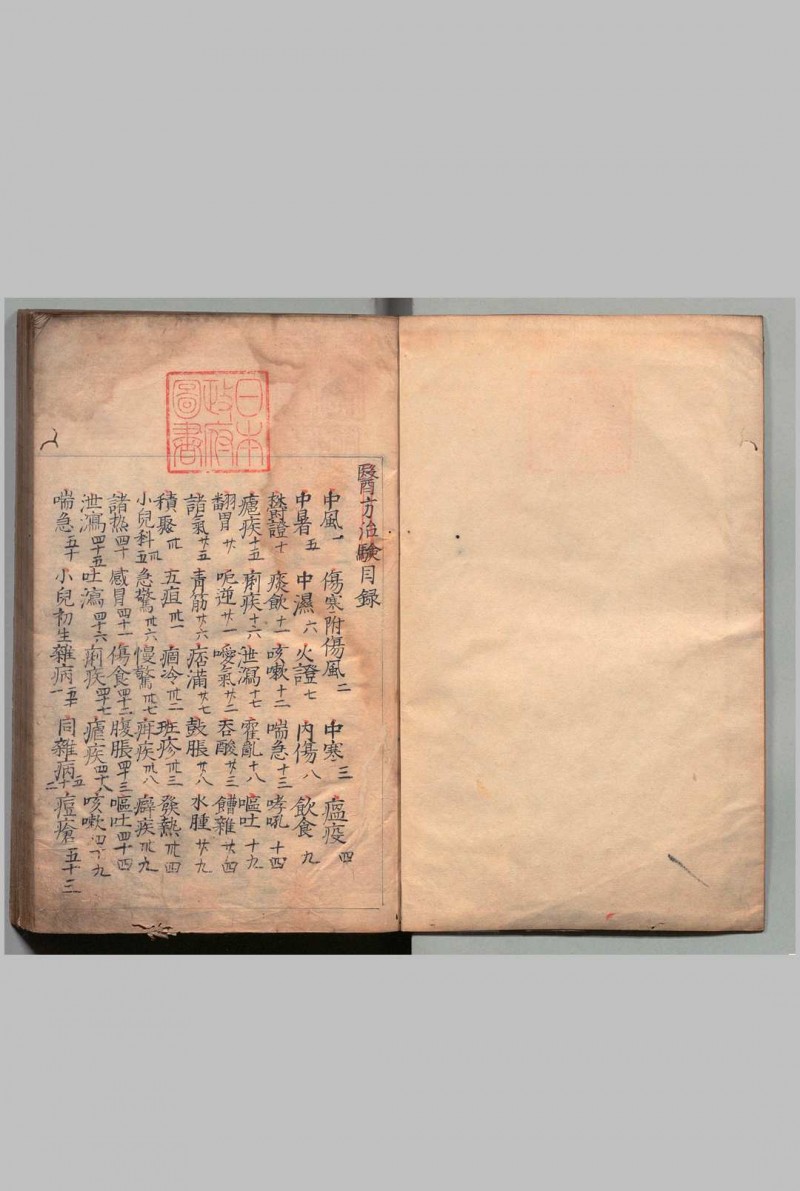 日本
政府
圖書
醫方治驗目録
中風一 傷寒附傷風二 中寒三 瘟疫四
中暑五 中濕六 火證七 内傷八 飲食九
欝證十 痰飲十一 咳嗽十二 喘急十三 哮吼十四
瘧疾十五 痢疾十六 泄瀉十七 霍亂十八 嘔吐十九
翻胃廿 呃逆廿一 噯氣廿二 吞酸廿三 嘈雜廿四
諸氣廿五 青筋廿六 痞滿廿七 鼓脹廿八 水腫廿九
積聚卅 五疸卅一 痼冷卅二 斑疹卅三 發熱卅四
小兒科卅五 急驚卅六 慢驚卅七 疳疾卅八 癖疾卅九
諸热四十 感冒四十一 傷食四十二 腹脹四十三 嘔吐四十四
泄瀉四十五 吐瀉四十六 痢疾四十七 瘧疾四十八 咳嗽四十九
喘急五十 小兒初生雜病五十一 同雜病五十二 痘瘡五十三